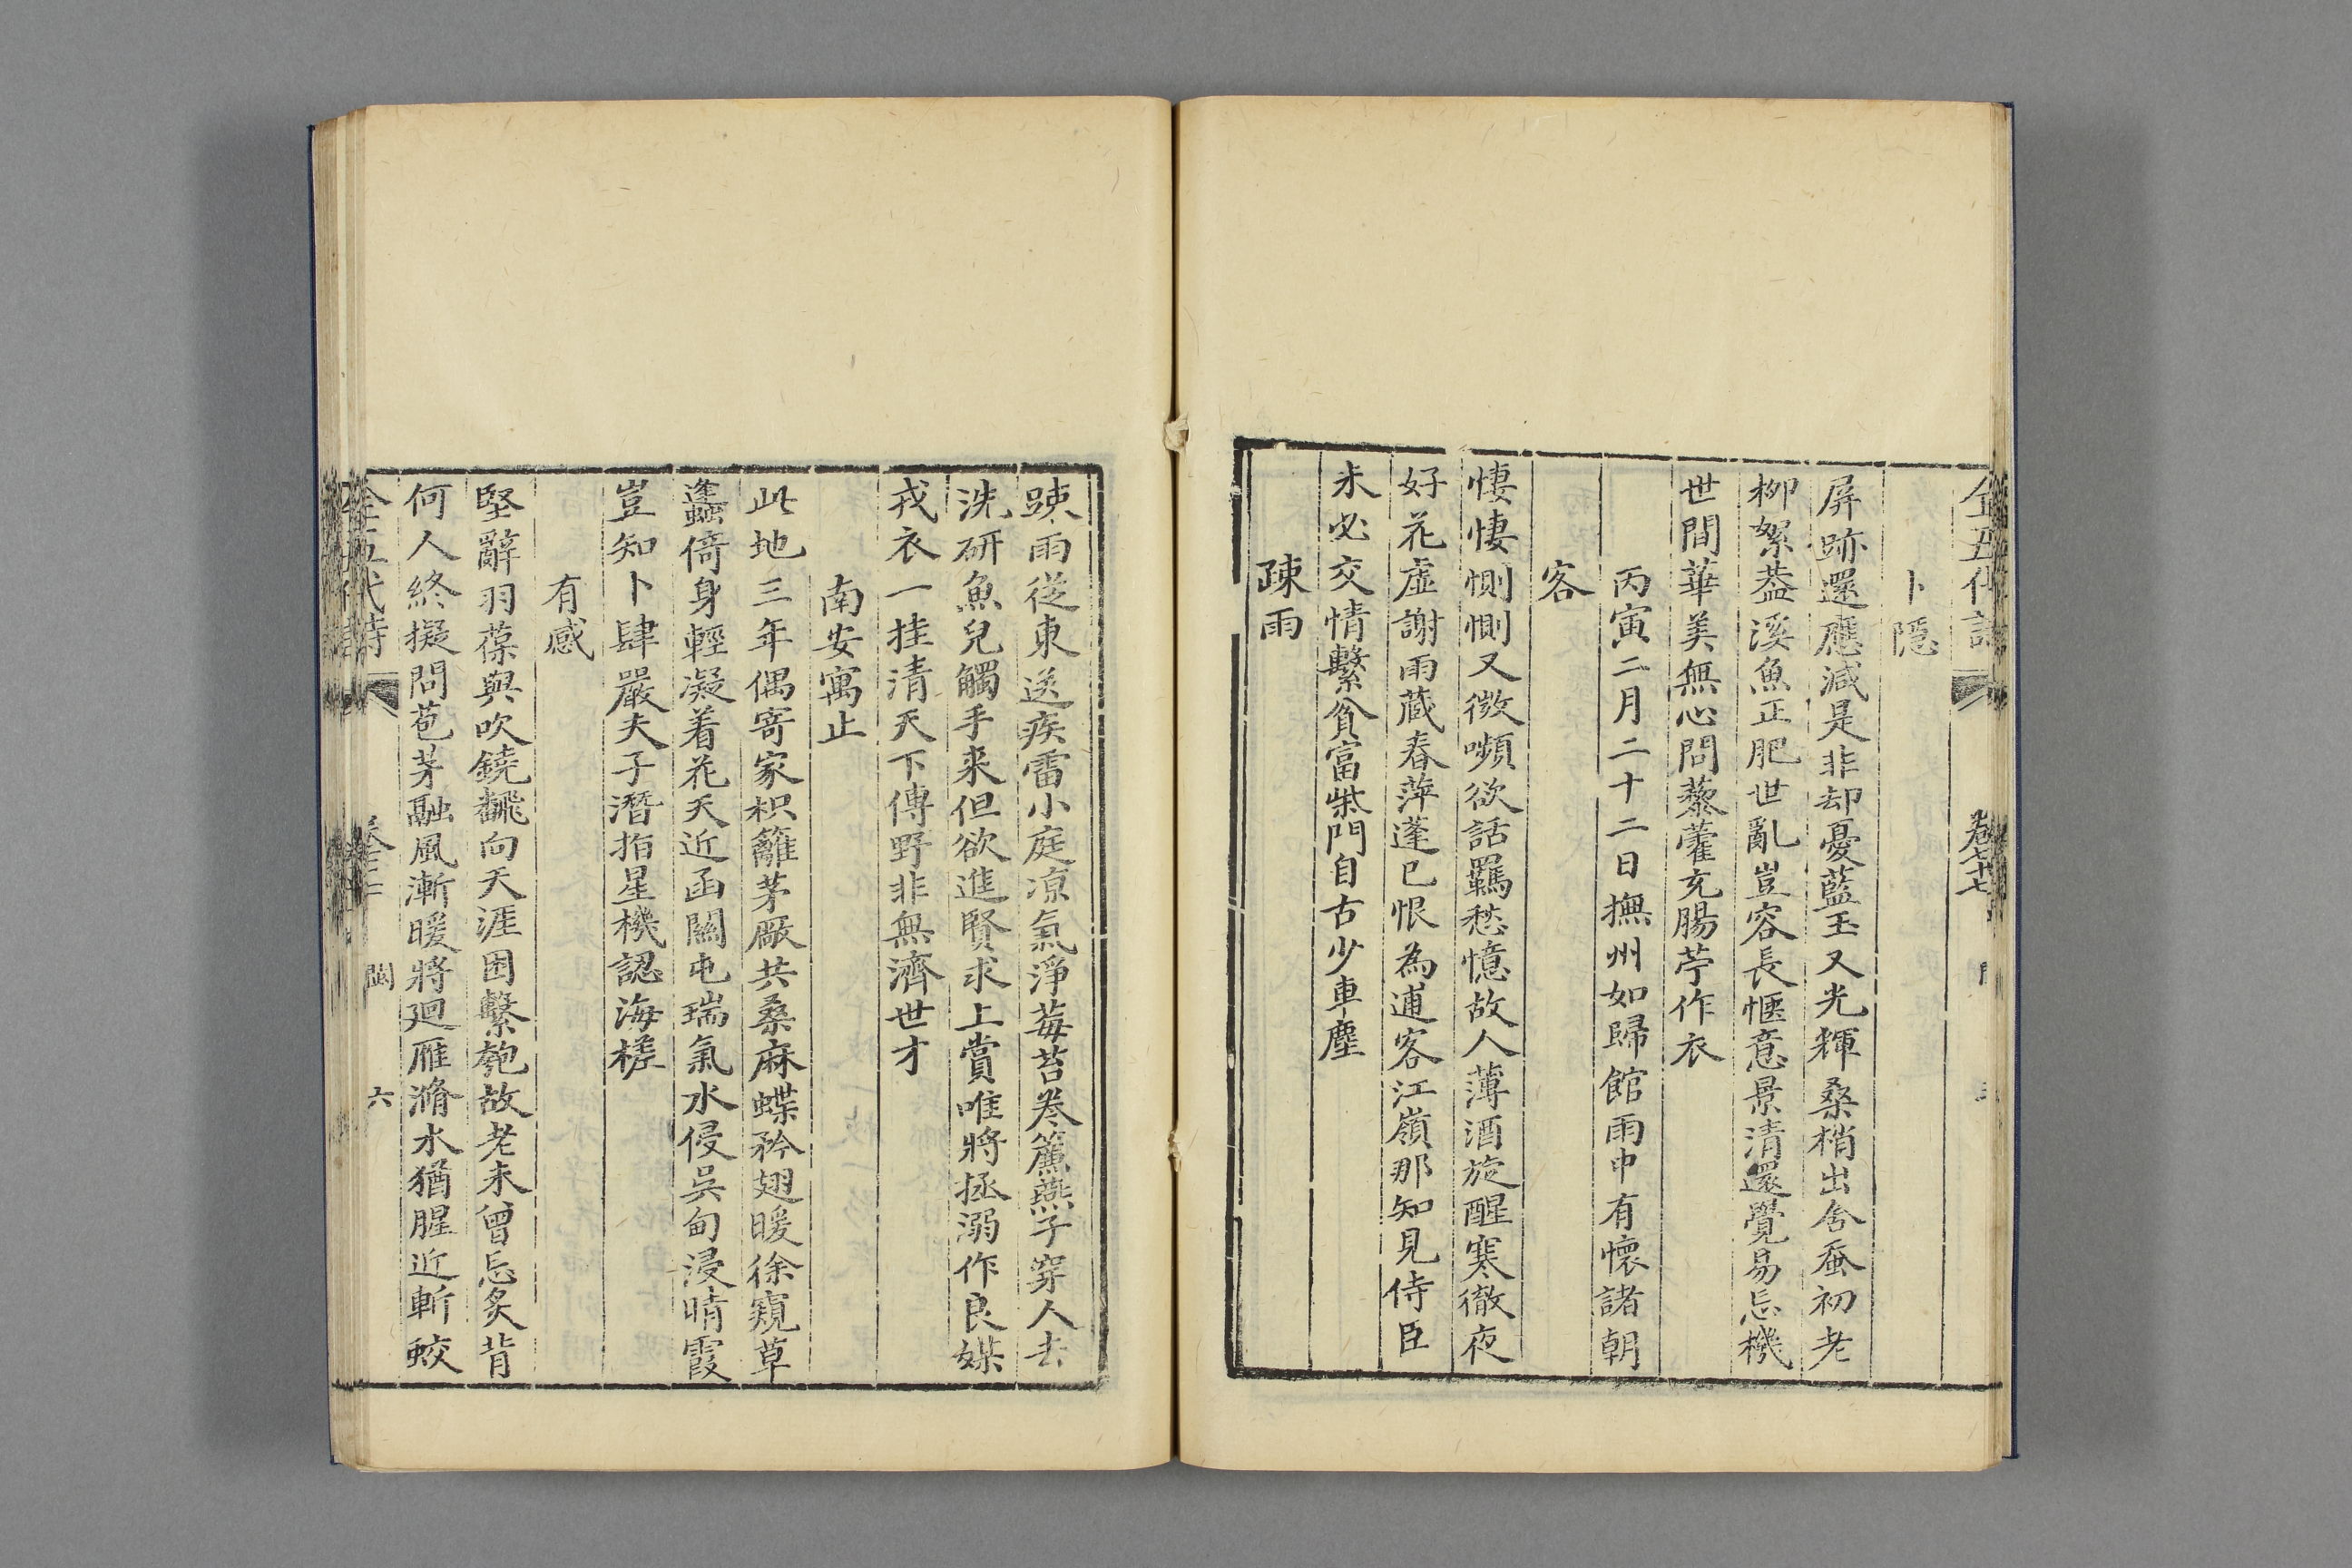 全五代詩
卷七十七
卜隱
屏跡還應減是非却憂藍玉又光輝桑梢出舍蚕初老
柳絮葢溪魚正肥世亂豈容長愜意景清還覺易忘機
世間華美無心問藜藿充腸苧作衣
丙寅二月二十二日撫州如歸館雨中有懷諸朝
客
悽悽惻惻又微嚬欲話羈愁憶故人薄酒旋醒寒徹夜
好花虛謝雨藏春萍蓬已恨為逋客江嶺那知見侍臣
未必交情繫貧富柴門自古少車塵
疎雨
踈雨從東送疾雷小庭凉氣淨莓苔卷簾燕子穿人去
洗研魚兒觸手來但欲進賢求上賞唯將拯溺作良媒
戎衣一挂清天下傳野非無濟世才
南安寓止
此地三年偶寄家枳籬茅厰共桑麻蝶矜翅暖徐窺草
蠭倚身輕凝着花天近函關屯瑞氣水侵吳甸浸晴霞
豈知卜肆嚴夫子潛指星機認海槎
有感
堅辭羽葆與吹鐃飜向天涯困繫匏故老未曾忘炙背
何人終擬問苞茅融風漸暖將廻雁滫水猶腥近斬蛟
全五代詩
閩
六